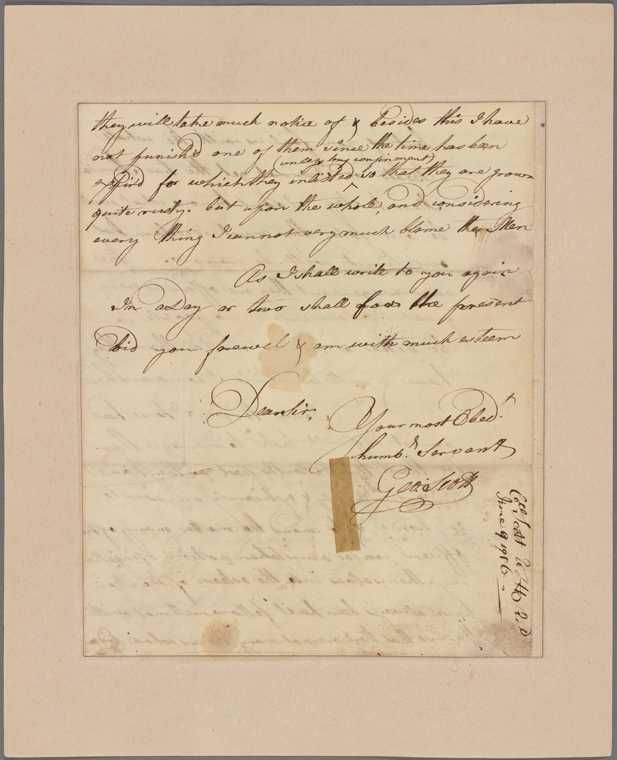 they will take much notice of & besides this I have
not punish'd one of them since the time has been
(unless by confinement)
expir'd for which they inlisted ^ so that they are grown
quite rusty. but upon the whole, and considering
every thing I cannot very much blame the Men
As I shall write to you again
In a Day or two shall for the present
bid you farewel & am with much esteem
Dear Sir,
Your most Obed.t
humb.e Servant
Geo: Scott
June 9 1756